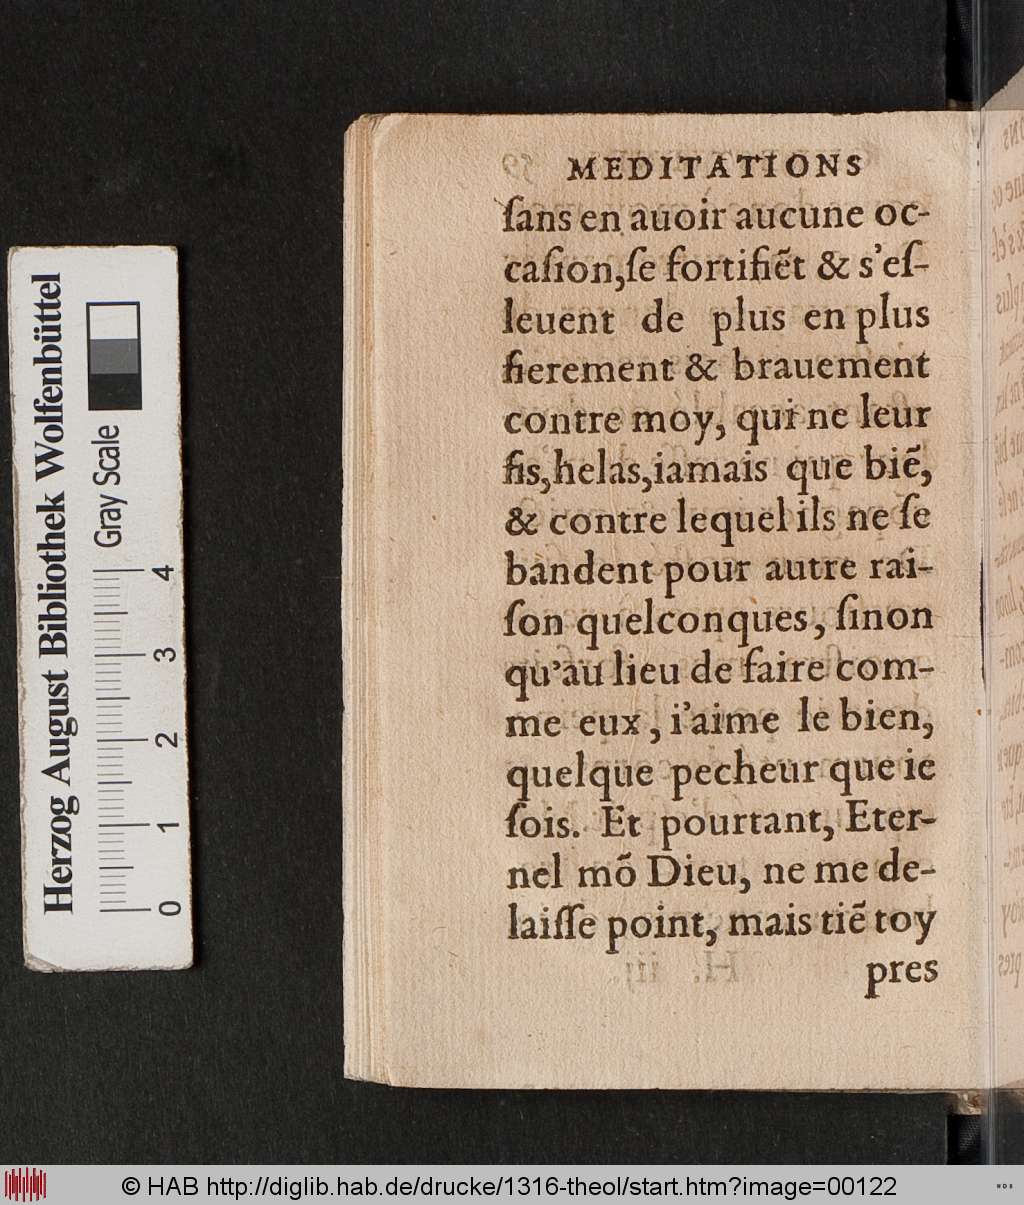 MEDITATIONS
ſans en auoir aucune oc-
caſion,ſe fortifiẽt & s'eſ-
leuent de plus en plus
fierement & brauement
contre moy, qui ne leur
fis,helas,iamais que biẽ,
& contre lequel ils ne ſe
bandent pour autre rai-
ſon quelconques, ſinon
qu'au lieu de faire com-
me eux, i'aime le bien,
quelque pecheur que ie
ſois. Et pourtant, Eter-
nel mõ Dieu, ne me de-
laiſſe point, mais tiẽ toy
pres
Herzog August Bibliothek Wolfenbüttel
Gray Scale
0 1 2 3 4
© HAB http://diglib.hab.de/drucke/1316-theol/start.htm?image=00122